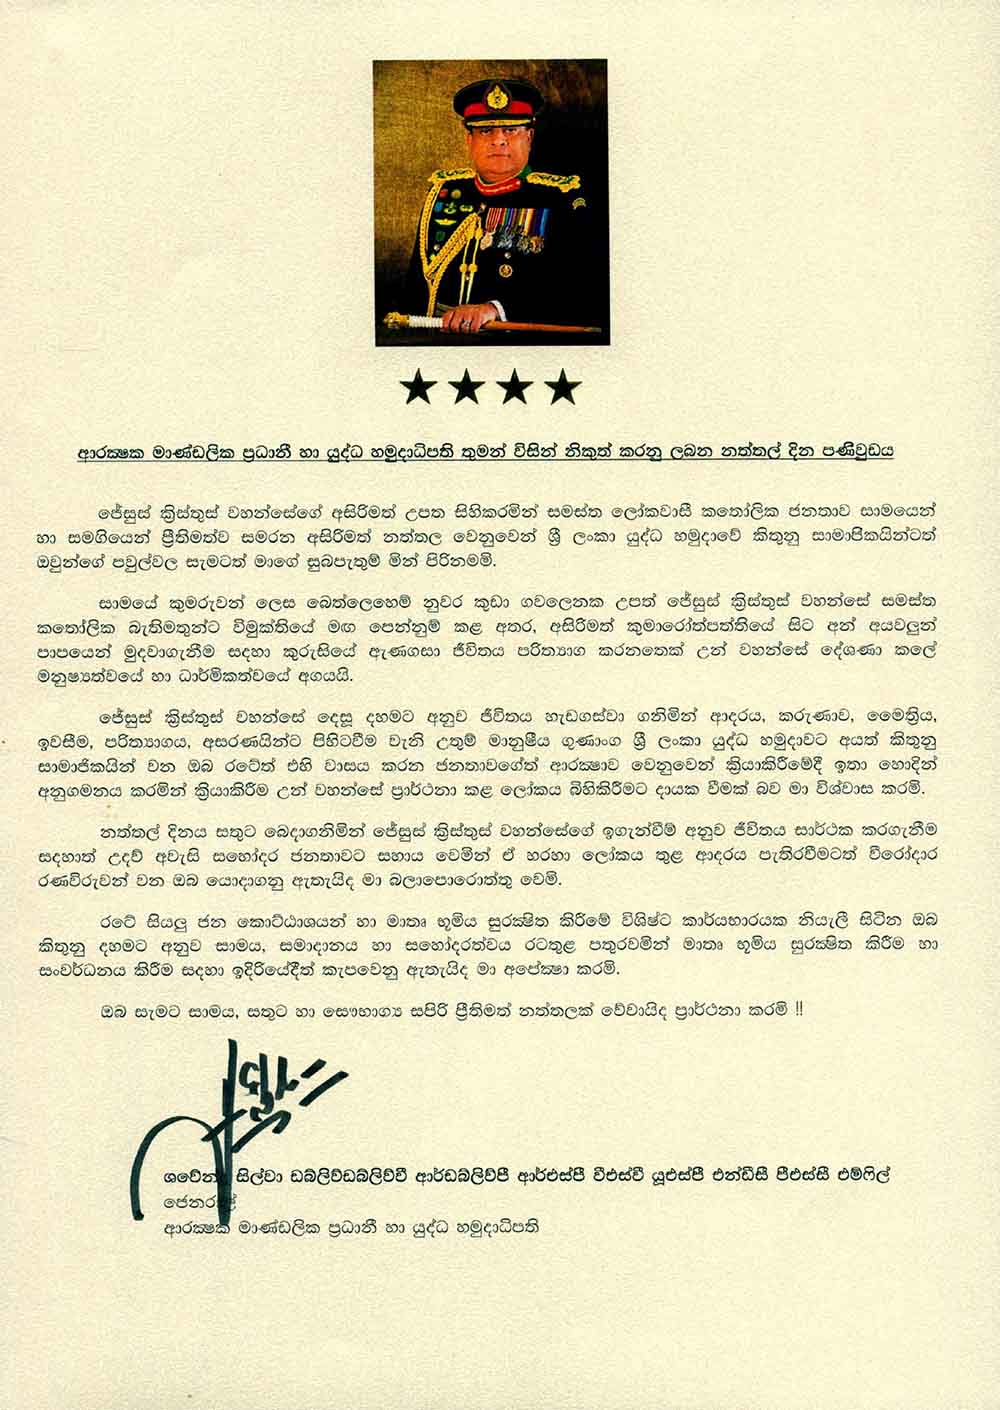 ආරක්‍ෂක මාණ්ඩලික ප්‍රධානී හා යුද්ධ හමුදාධිපති තුමන් විසින් නිකුත් කරනු ලබන නත්තල් දින පණිවුඩය
ජේසුස් ක්‍රිස්තුස් වහන්සේගේ අසිරිමත් උපත සිහිකරමින් සමස්ත ලෝකවාසී කතෝලික ජනතාව සාමයෙන්
හා සමගියෙන් ප්‍රීතිමත්ව සමරන අසිරිමත් නත්තල වෙනුවෙන් ශ්‍රී ලංකා යුද්ධ හමුදාවේ කිතුනු සාමාජිකයින්ටත්
ඔවුන්ගේ පවුල්වල සැමටත් මාගේ සුබපැතුම් මින් පිරිනමමි.
සාමයේ කුමරුවන් ලෙස බෙත්ලෙහෙම් නුවර කුඩා ගවලෙනක උපත් ජේසුස් ක්‍රිස්තුස් වහන්සේ සමස්ත
කතෝලික බැතිමතුන්ට විමුක්තියේ මඟ පෙන්නුම් කළ අතර, අසිරිමත් කුමාරෝත්පත්තියේ සිට අන් අයවලුන්
පාපයෙන් මුදවාගැනීම සදහා කුරුසියේ ඇණගසා ජීවිතය පරිත්‍යාග කරනතෙක් උන් වහන්සේ දේශණා කලේ
මනුෂ්‍යත්වයේ හා ධාර්මිකත්වයේ අගයයි.
ජේසුස් ක්‍රිස්තුස් වහන්සේ දෙසූ දහමට අනුව ජීවිතය හැඩගස්වා ගනිමින් ආදරය, කරුණාව, මෛත්‍රිය,
ඉවසීම, පරිත්‍යාගය, අසරණයින්ට පිහිටවීම වැනි උතුම් මානුෂීය ගුණාංග ශ්‍රී ලංකා යුද්ධ හමුදාවට අයත් කිතුනු
සාමාජිකයින් වන ඔබ රටේත් එහි වාසය කරන ජනතාවගේත් ආරක්‍ෂාව වෙනුවෙන් ක්‍රියාකිරීමේදී ඉතා හොදින්
අනුගමනය කරමින් ක්‍රියාකිරීම උන් වහන්සේ ප්‍රාර්ථනා කළ ලෝකය බිහිකිරීමට දායක වීමක් බව මා විශ්වාස කරමි.
නත්තල් දිනය සතුට බෙදාගනිමින් ජේසුස් ක්‍රිස්තුස් වහන්සේගේ ඉගැන්වීම් අනුව ජීවිතය සාර්ථක කරගැනීම
සදහාත් උදව් අවැසි සහෝදර ජනතාවට සහාය වෙමින් ඒ හරහා ලෝකය තුළ ආදරය පැතිරවීමටත් වීරෝදාර
රණවිරුවන් වන ඔබ යොදාගනු ඇතැයිද මා බලාපොරොත්තු වෙමි.
රටේ සියලු ජන කොට්ඨාශයන් හා මාතෘ භූමිය සුරක්‍ෂිත කිරීමේ විශිෂ්ට කාර්යභාරයක නියැලී සිටින ඔබ
කිතුනු දහමට අනුව සාමය, සමාදානය හා සහෝදරත්වය රටතුළ පතුරවමින් මාතෘ භූමිය සුරක්‍ෂිත කිරීම හා
සංවර්ධනය කිරීම සදහා ඉදිරියේදීත් කැපවෙනු ඇතැයිද මා අපේක්‍ෂා කරමි.
ඔබ සැමට සාමය, සතුට හා සෞභාග්‍ය සපිරි ප්‍රීතිමත් නත්තලක් වේවායිද ප්‍රාර්ථනා කරමි !!
ශවේන්ද්‍ර සිල්වා ඩබ්ලිව්ඩබ්ලිව්වී ආර්ඩබ්ලිව්පී ආර්එස්පී වීඑස්වී යූඑස්පී එන්ඩීසී පීඑස්සී එම්ෆිල්
ජෙනරාල්
ආරක්‍ෂක මාණ්ඩලික ප්‍රධානී හා යුද්ධ හමුදාධිපති